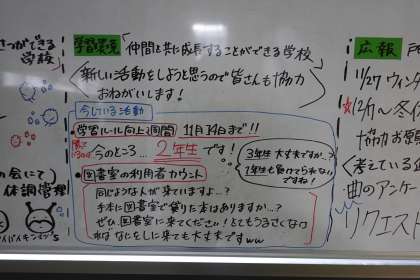 さつができる
学校」
学習環境 「仲間と共に成長することができる学校」
〈新しい活動をしようと思うので皆さんも協力
おねがいします!
今している活動
・学習ルール向上2週間 11月14日まで!!
勝っているのは
今のところ… 2年生 です!
3年生大丈夫ですか…?
1年生も負けてられない
ですね!
・図書室の利用者カウント
同じような人が来ていますよ…?
手本に図書室で借りた本はありますか…?
ぜひ図書室に来てください!とてもうるさくなけ
ればなにをしに来ても大丈夫ですww
の会にて)
体調管理
バイバイキィン'S
広報
11/27 ウィンタ
☆12/1〜冬休
協力お願
〈考えている企
曲のアンケー
リクエスト